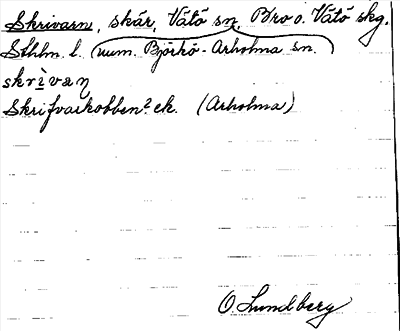 Skrivarn, skär, Vätö sn, Bro o. Vätö skg,
Sthlm. l. (num. Björkö-Arholma sn.
skrìvaṇ
Skrifvarkobben? ek. (Arholma)
O. Lundberg